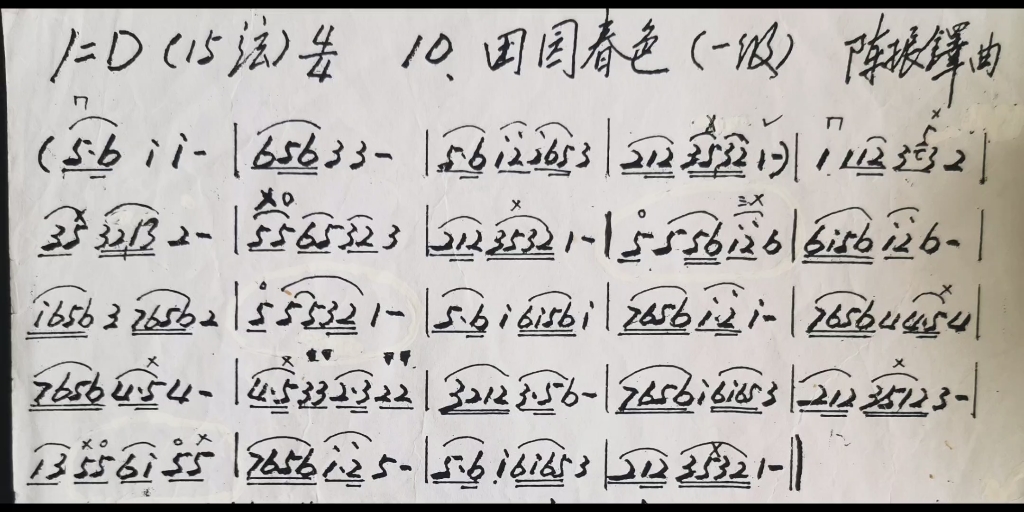 1=D (15弦) 4/4 10、田园春色 (一级) 陈振铎曲
(5·6 i i - | 656 3 3 - | 5·6 i2 2653 | 212 3532 1 -) | 1 112 332 2 |
35 3213 2 - | 55 6532 3 | 212 3532 1 - | 5 556 i2 6 | 6i56 i2 6 - |
i656 3 7656 2 | 5 5532 1 - | 5·6 i 6i56 i | 7656 i·2 i - | 7656 4 4·5 4 |
7656 4·5 4 - | 4·5 33 2·3 22 | 3212 3·5 6 - | 7656 i 6i65 3 | 212 3512 3 - |
13 55 6i 55 | 7656 i·2 5 - | 5·6 i 6i65 3 | 212 3532 1 - ‖